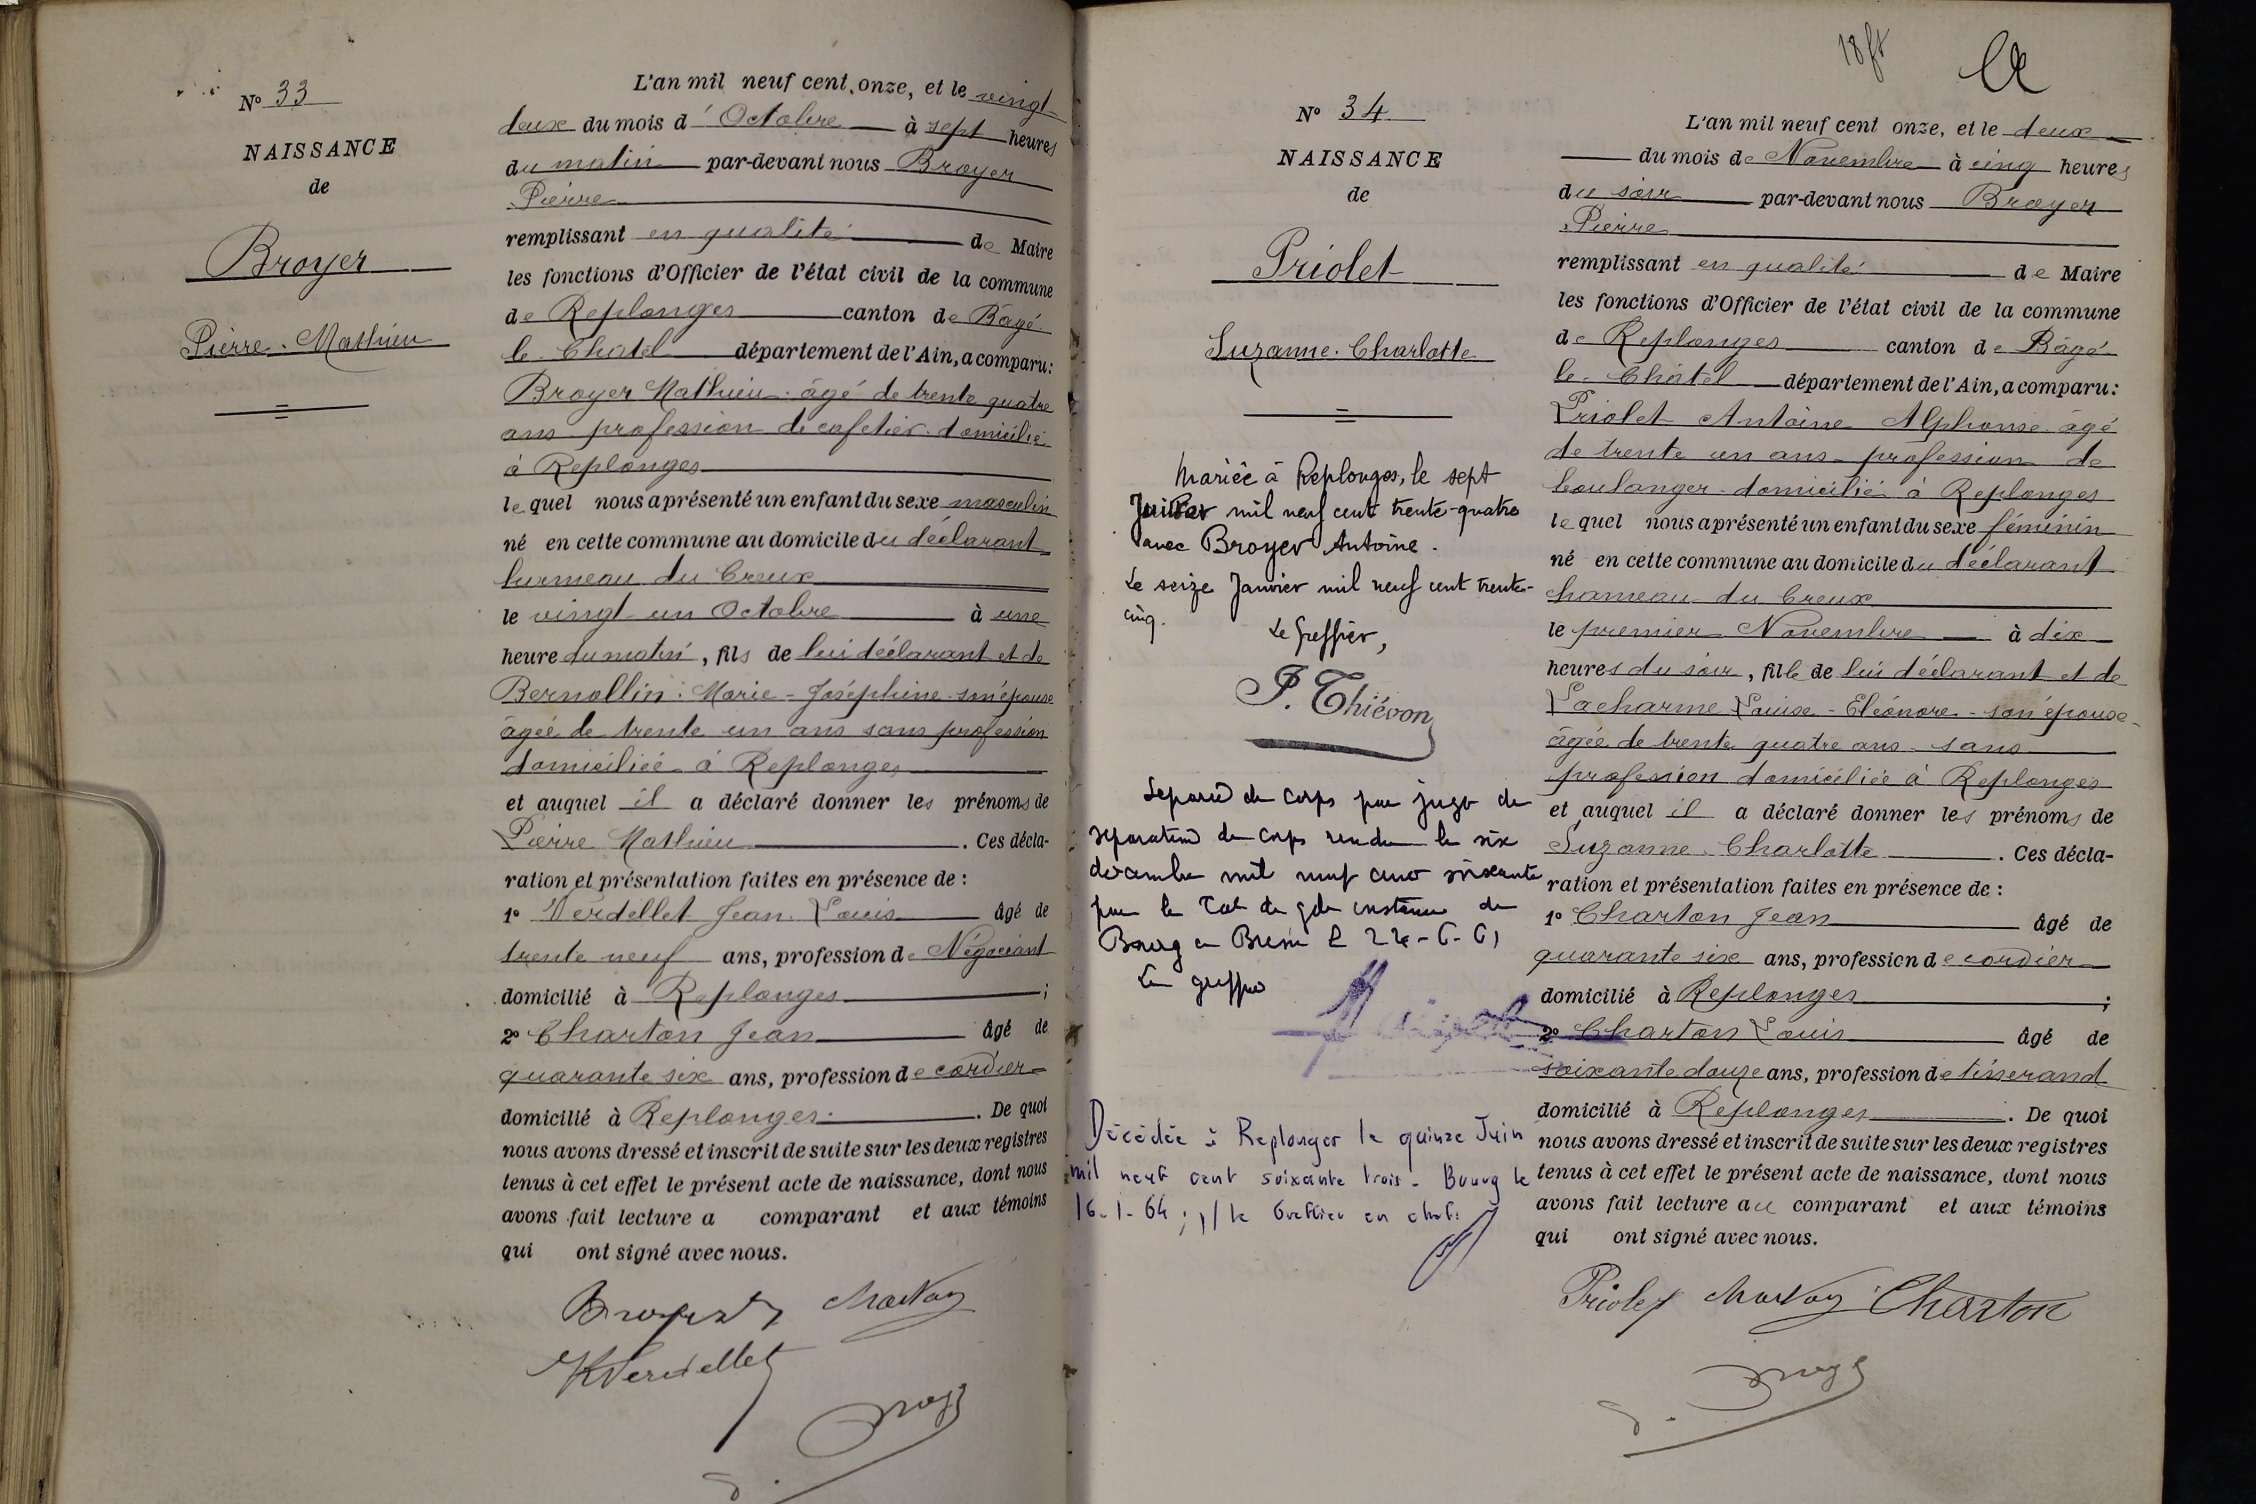 N° 33
NAISSANCE
de
Broyer
Pierre. Mathieu
L'an mil neuf cent onze, et le vingt
deux du mois d' Octobre à sept heures
du matin par-devant nous Broyer
Pierre
remplissant en qualité de Maire
les fonctions d'Officier de l'état civil de la commune
de Replonges canton de Bâgé
le Chatel département de l'Ain, a comparu:
Broyer Mathieu âgé de trente quatre
ans profession de cafetier domicilié
à Replonges
lequel nous a présenté un enfant du sexe masculin
né en cette commune au domicile du déclarant
hameau du Creux
le vingt un Octobre à une
heure du matin, fils de lui déclarant et de
Bernollin Marie-Joséphine son épouse
âgée de trente un ans sans profession
domiciliée à Replonges
et auquel il a déclaré donner les prénoms de
Pierre Mathieu. Ces décla-
ration et présentation faites en présence de :
1° Verdellet Jean Louis âgé de
trente neuf ans, profession de Négociant
domicilié à Replonges ;
2° Charton Jean âgé de
quarante six ans, profession de cordier
domicilié à Replonges. De quoi
nous avons dressé et inscrit de suite sur les deux registres
tenus à cet effet le présent acte de naissance, dont nous
avons fait lecture a comparant et aux témoins
qui ont signé avec nous.
Verdellet
18 ft
N° 34
NAISSANCE
de
Priolet
Suzanne. Charlotte
Mariée à Replonges, le sept
mil neuf cent trente-quatre
avec Broyer Antoine.
Le seize Janvier mil neuf cent trente-
cinq.
Le Greffier,
P. Thiévon
Séparée de corps par jugt de
séparation de corps rendu le six
décembre mil neuf cent soixante
par le Tal de gde instance de
Bourg en Bresse
Le greffier
Décédée à Replonges le quinze Juin
mil neuf cent soixante trois - Bourg le
16-1-64 ; p/ le Greffier en chef:
L'an mil neuf cent onze, et le deux
du mois de Novembre à cinq heures
du soir par-devant nous Broyer
Pierre
remplissant en qualité de Maire
les fonctions d'Officier de l'état civil de la commune
de Replonges canton de Bâgé
le Châtel département de l'Ain, a comparu:
Priolet Antoine Alphonse âgé
de trente un ans profession de
boulanger domicilié à Replonges
lequel nous a présenté un enfant du sexe féminin
né en cette commune au domicile du déclarant
hameau du Creux
le premier Novembre à dix
heures du soir, fille de lui déclarant et de
Lacharme Louise-Eléonore son épouse
âgée de trente quatre ans sans
profession domiciliée à Replonges
et auquel il a déclaré donner les prénoms de
Suzanne Charlotte. Ces décla-
ration et présentation faites en présence de :
1° Charton Jean âgé de
quarante six ans, profession de cordier
domicilié à Replonges ;
2° Charton Louis âgé de
soixante douze ans, profession de tisserand
domicilié à Replonges. De quoi
nous avons dressé et inscrit de suite sur les deux registres
tenus à cet effet le présent acte de naissance, dont nous
avons fait lecture au comparant et aux témoins
qui ont signé avec nous.
Priolet Charton Charton